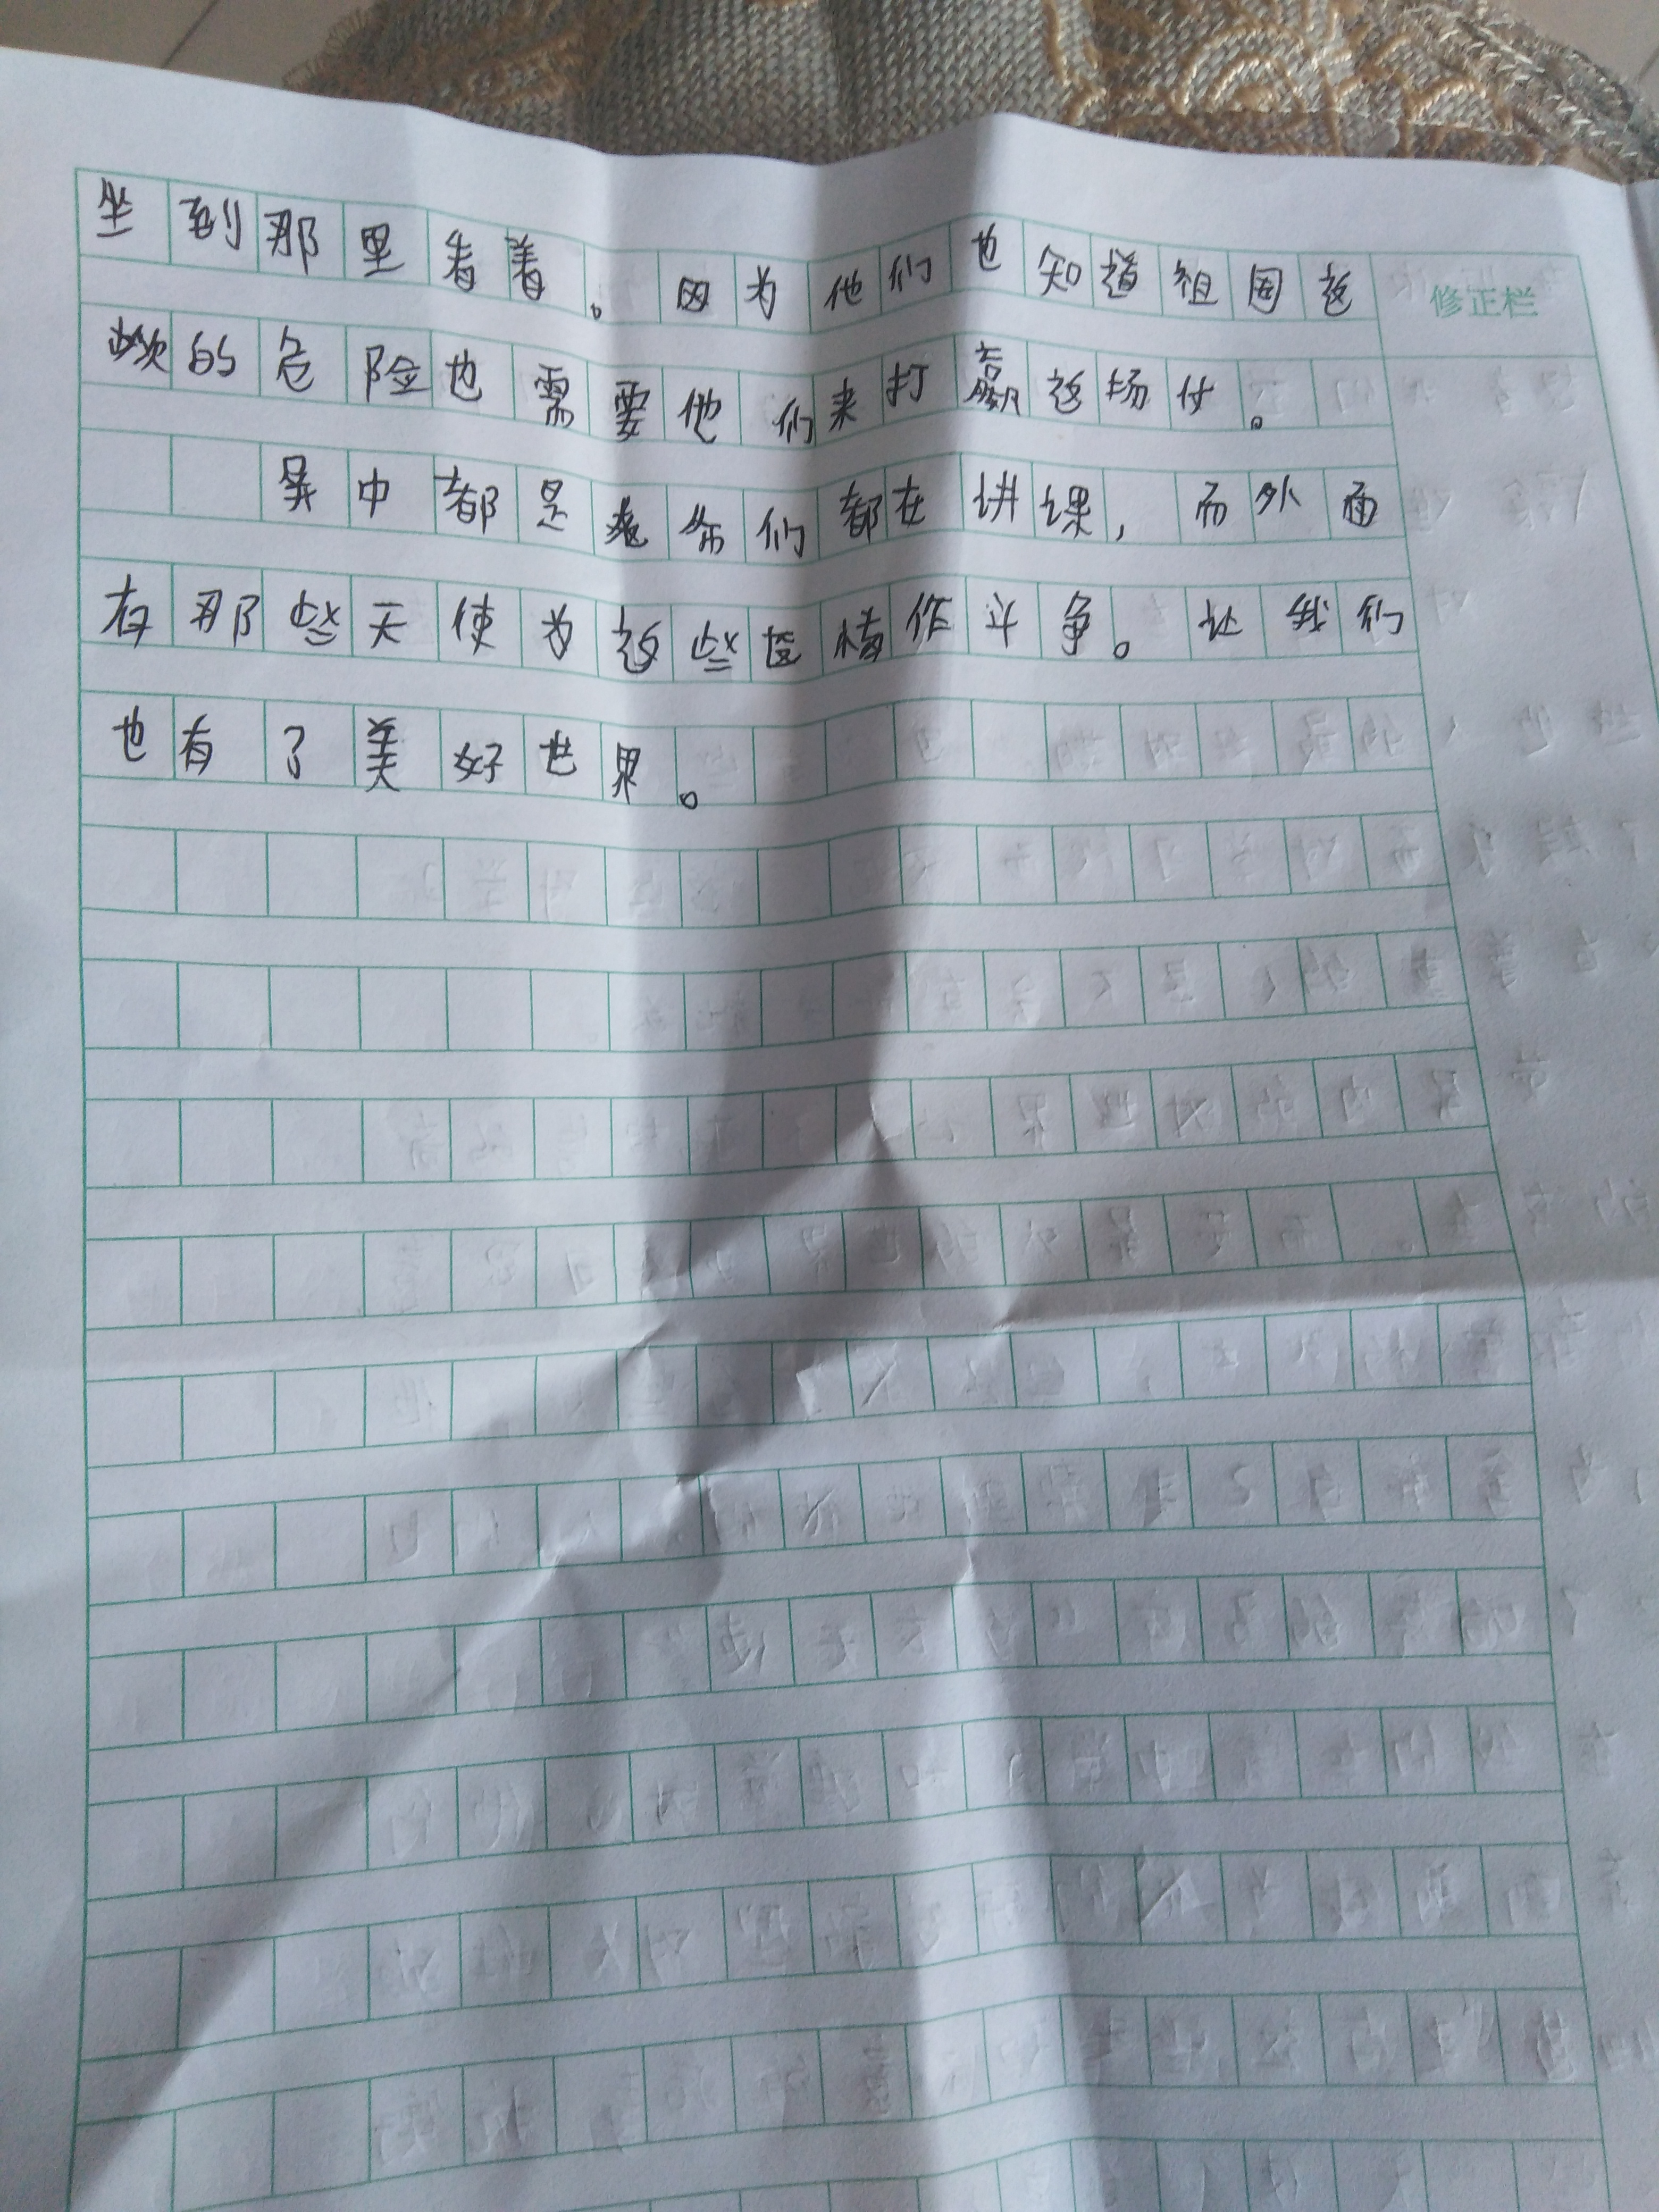 坐到那里看着。因为他们也知道祖国这
修正栏
次的危险也需要他们来打赢这场仗。
中都是老师们都在讲课，而外面
有那些天使为这些疫情作斗争。让我们
也有了美好世界。